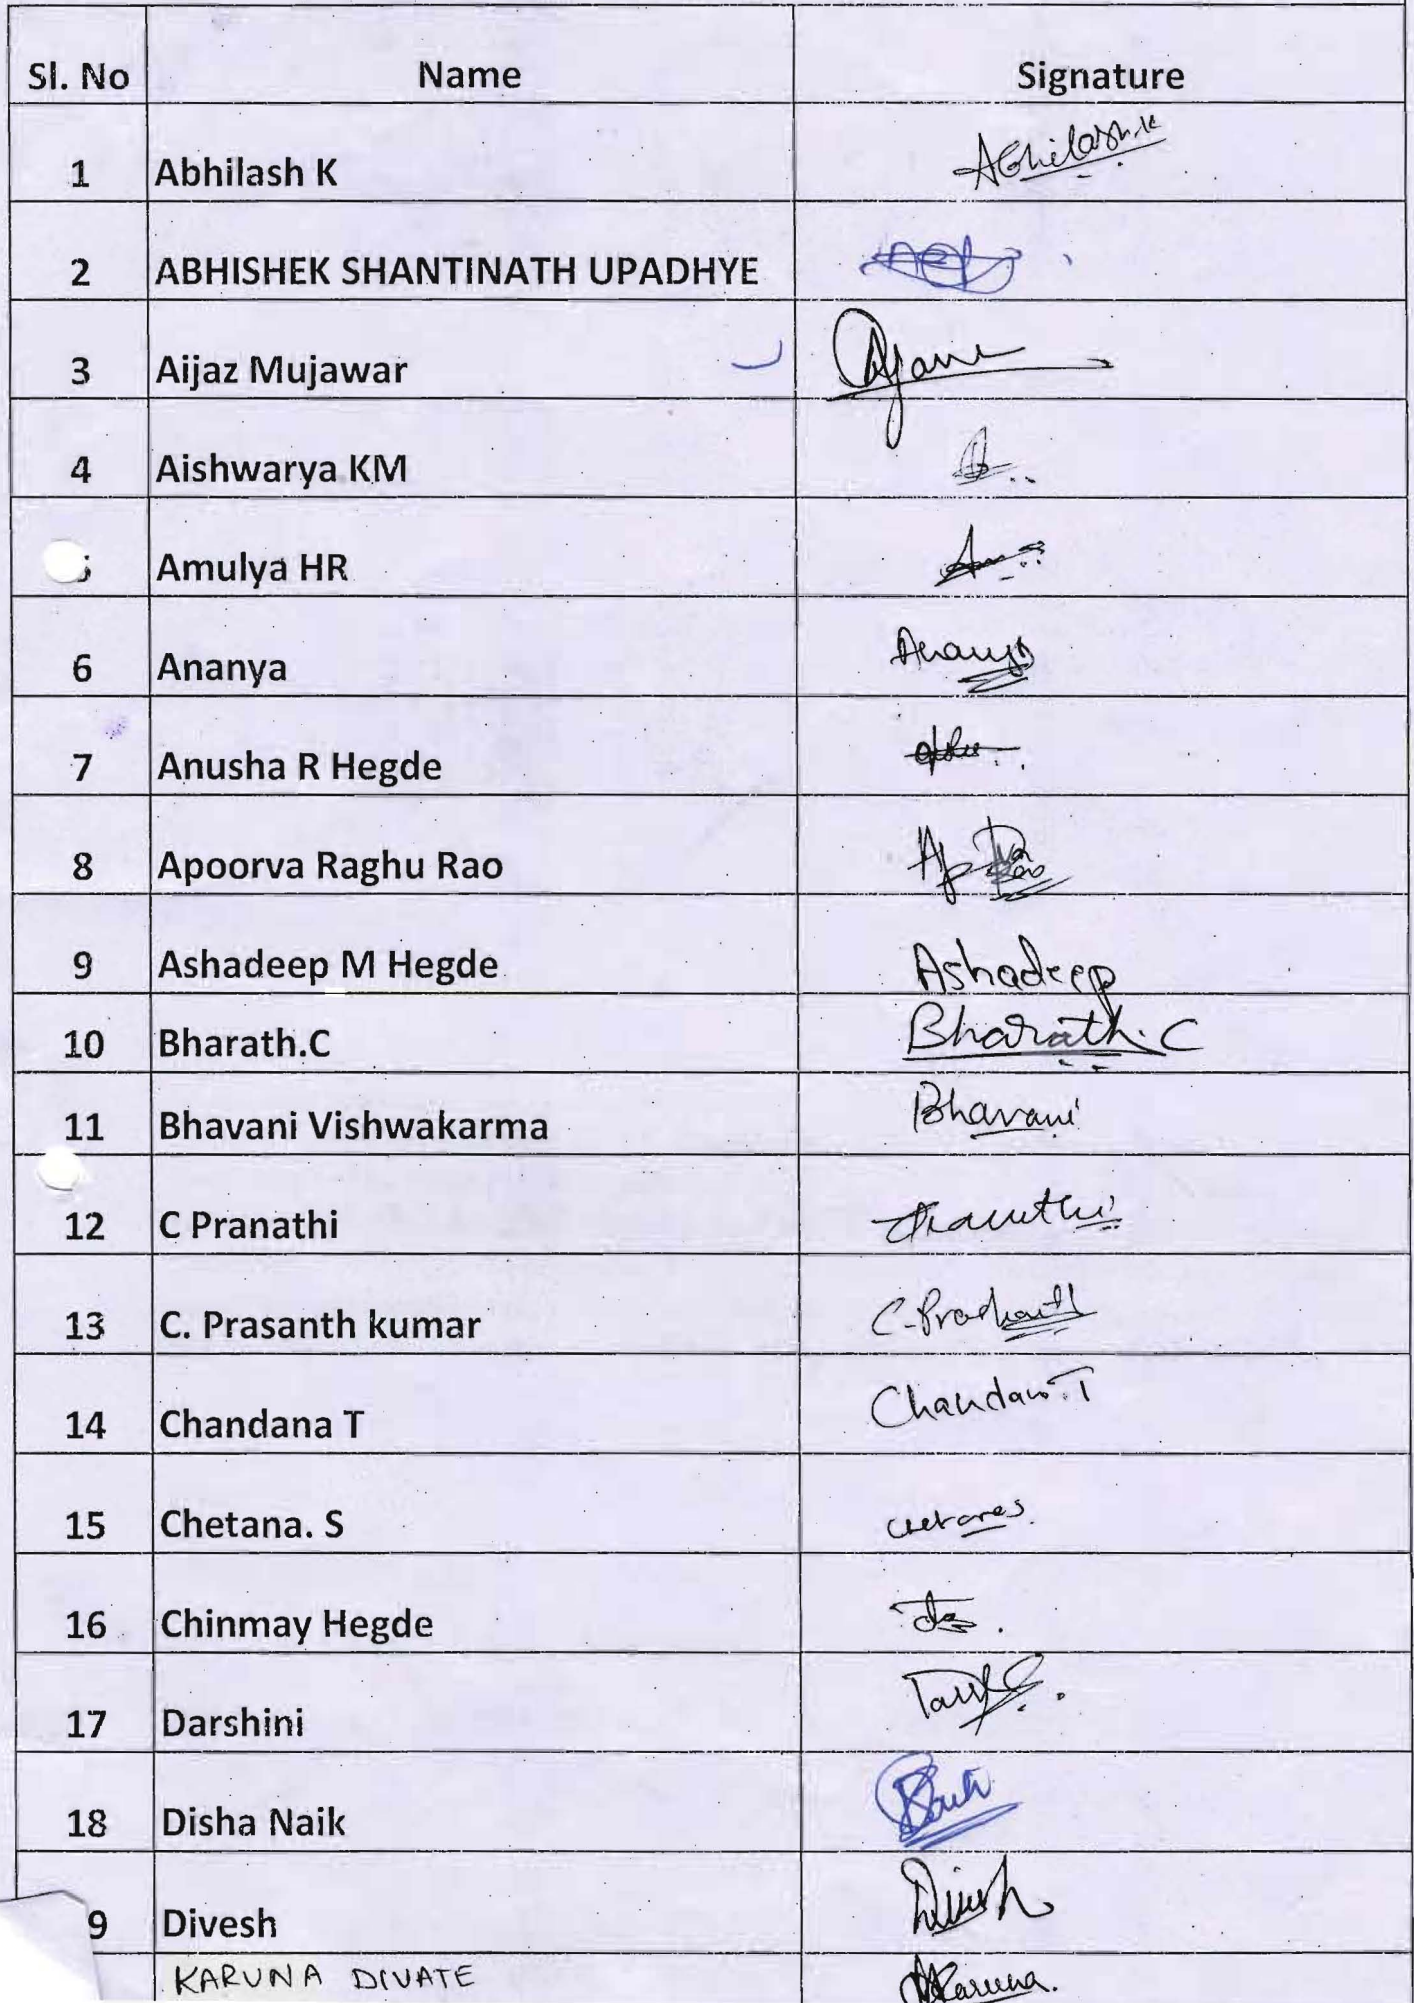 Sl. No Name Signature
1 Abhilash K Abhilash.k
2 ABHISHEK SHANTINATH UPADHYE
3 Aijaz Mujawar
4 Aishwarya KM
Amulya HR
6 Ananya Ananya
7 Anusha R Hegde
8 Apoorva Raghu Rao Ap Rao
9 Ashadeep M Hegde Ashadeep
10 Bharath.C Bharath.C
11 Bhavani Vishwakarma Bhavani
12 C Pranathi Pranathi
13 C. Prasanth kumar C.Prashanth
14 Chandana T Chandana.T
15 Chetana. S Chetana S
16 Chinmay Hegde
17 Darshini
18 Disha Naik
9 Divesh Divesh
KARUNA DIVATE Karuna.